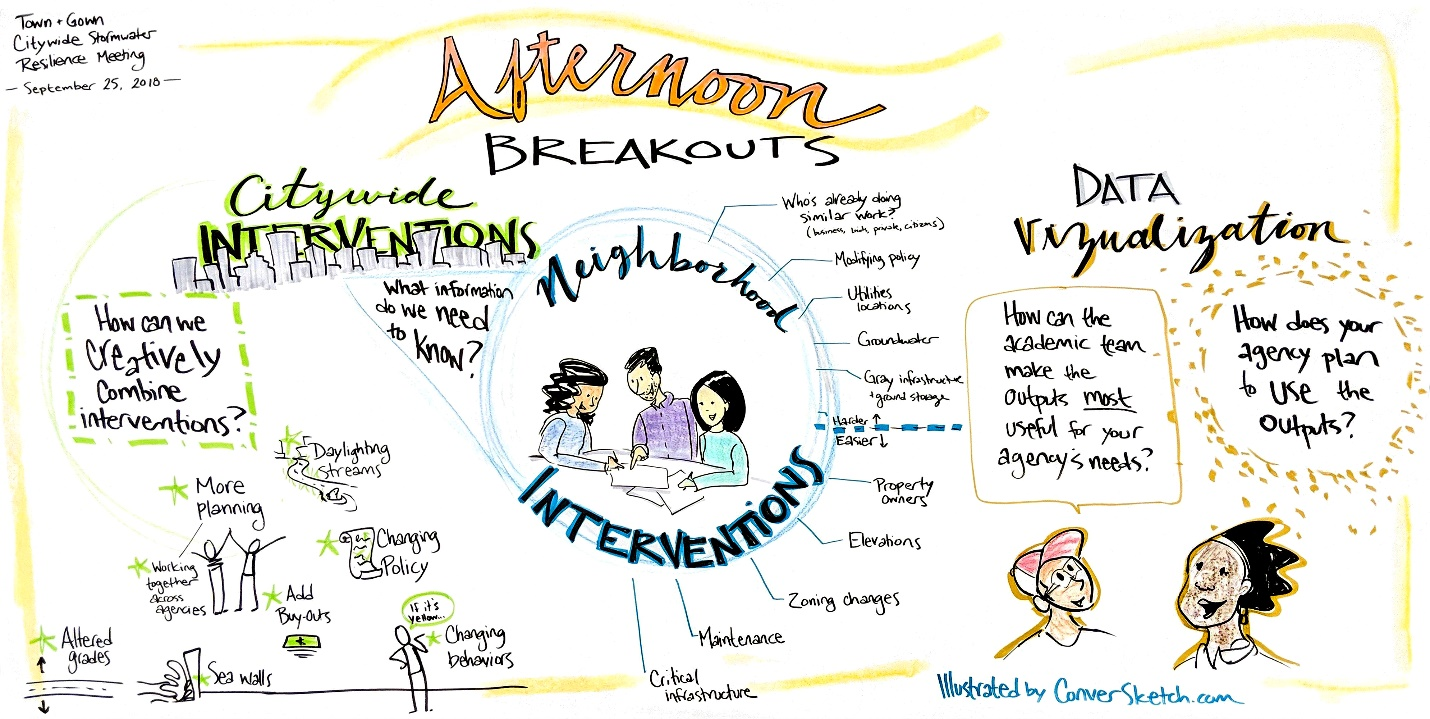 Town + Gown
Citywide Stormwater
Resilience Meeting
- September 25, 2018 -
Afternoon
BREAKOUTS
Citywide
INTERVENTIONS
How can we
creatively
combine
interventions?
What information
do we need
to know?
Daylighting
Streams
More
planning
Working
together
across
agencies
Changing
Policy
Add
Buy-outs
If it's
yellow...
Changing
behaviors
Altered
grades
Sea walls
Neighborhood
INTERVENTIONS
Who's already doing
similar work?
(business, instit, private, citizens)
Modifying policy
Utilities
locations
Groundwater
Gray infrastructure
+ ground storage
Harder ↑
Easier ↓
Property
owners
Elevations
Zoning changes
Maintenance
Critical
infrastructure
DATA
Vizualization
How can the
academic team
make the
outputs most
useful for your
agency's needs?
How does your
agency plan
to USE the
outputs?
Illustrated by ConverSketch.com